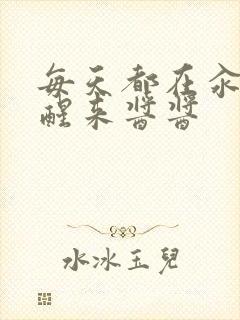 每天都在汆
醒来酱酱
水冰玉兒